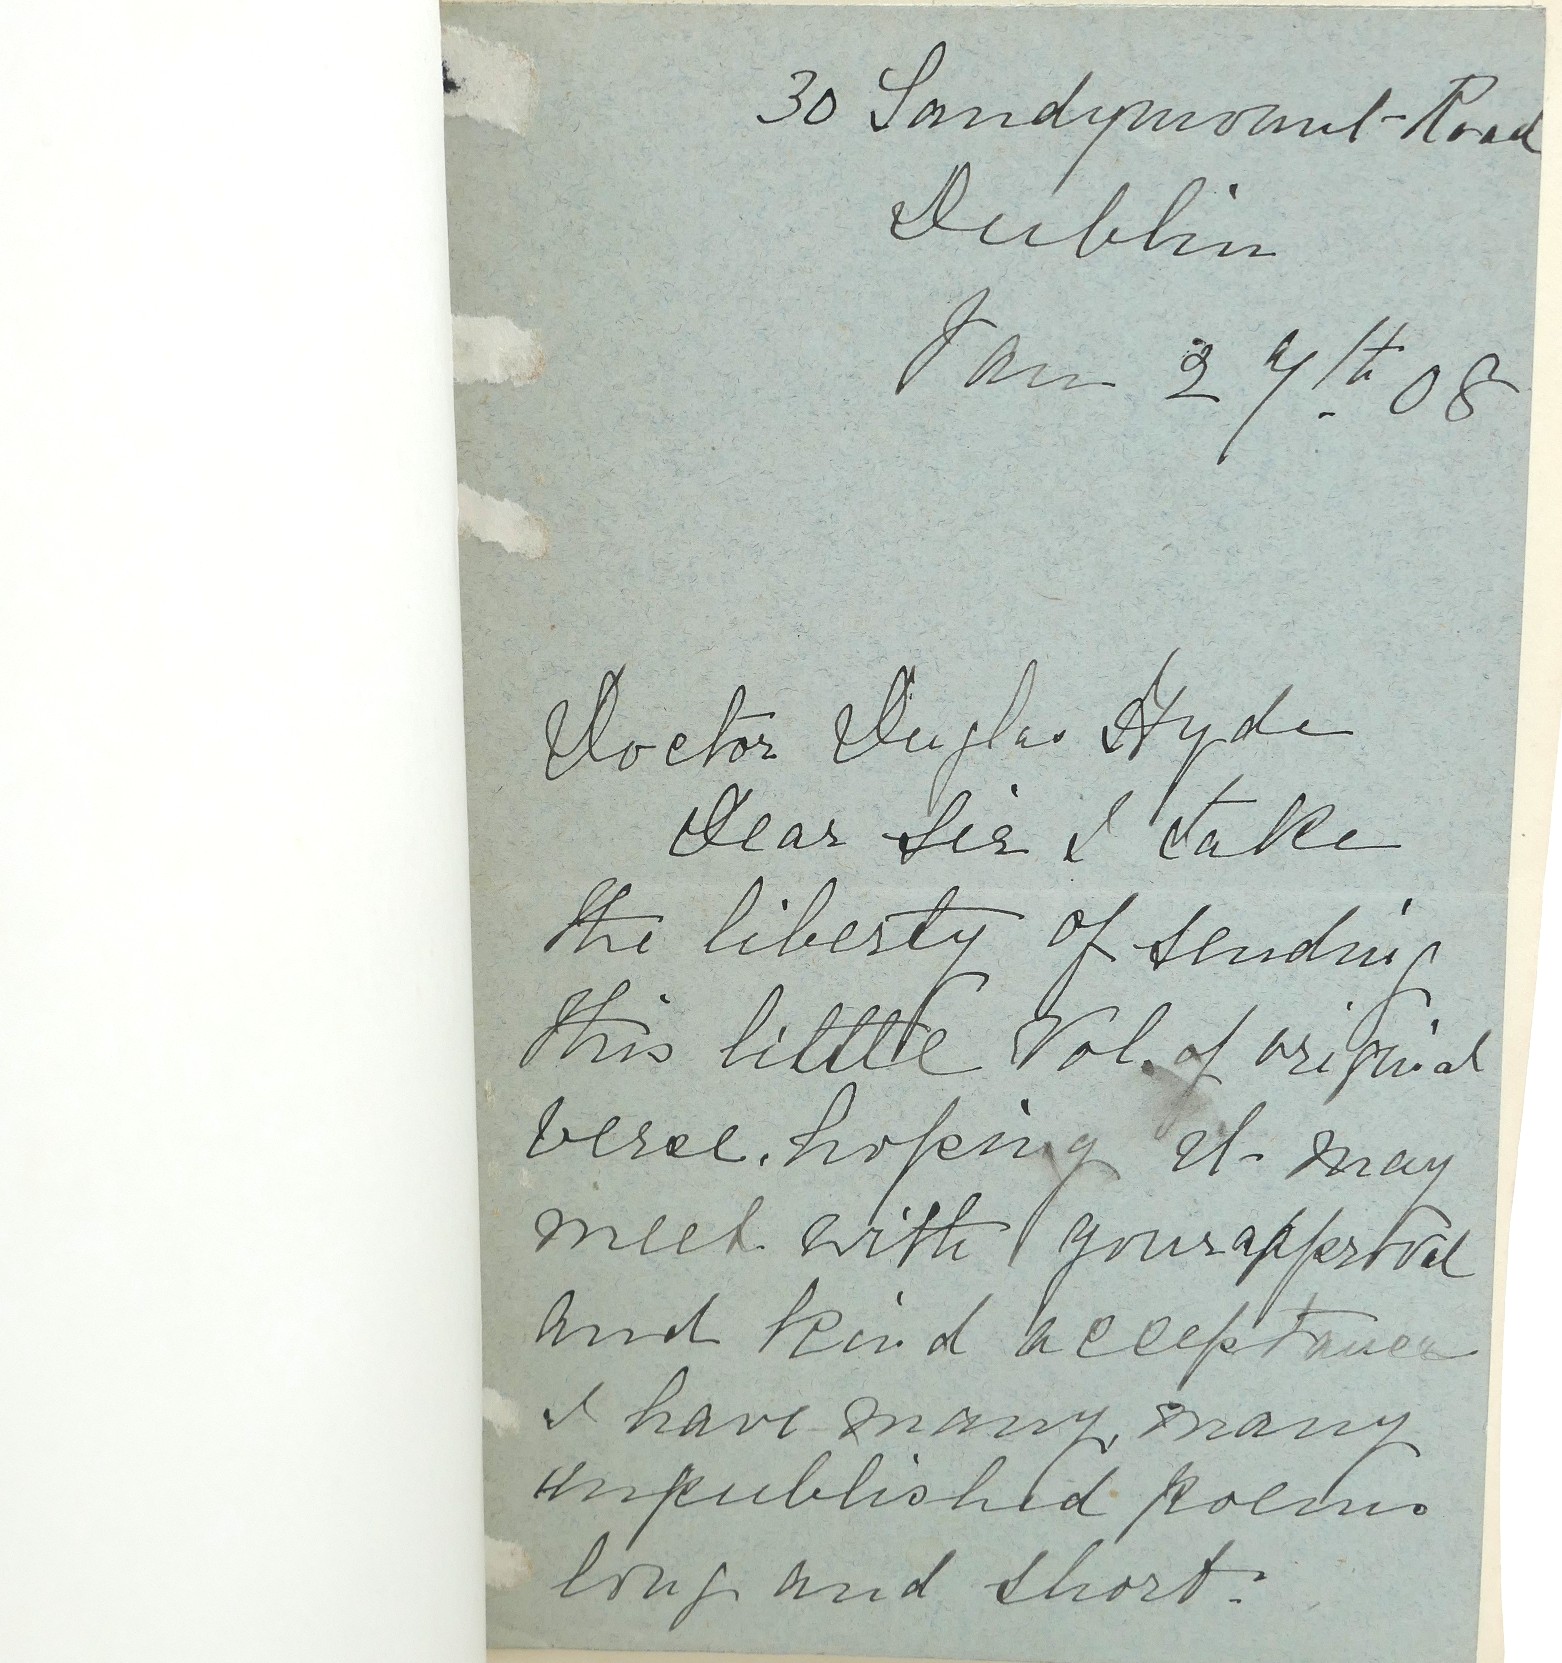 30 Sandymount Road
Dublin
Jan 27th 08
Doctor Duglas Hyde
Dear Sir I take
the liberty of sending
this little Vol. of original
verse. hoping it may
meet with your approval
and kind acceptance
I have many, many
unpublished poems
long and short.